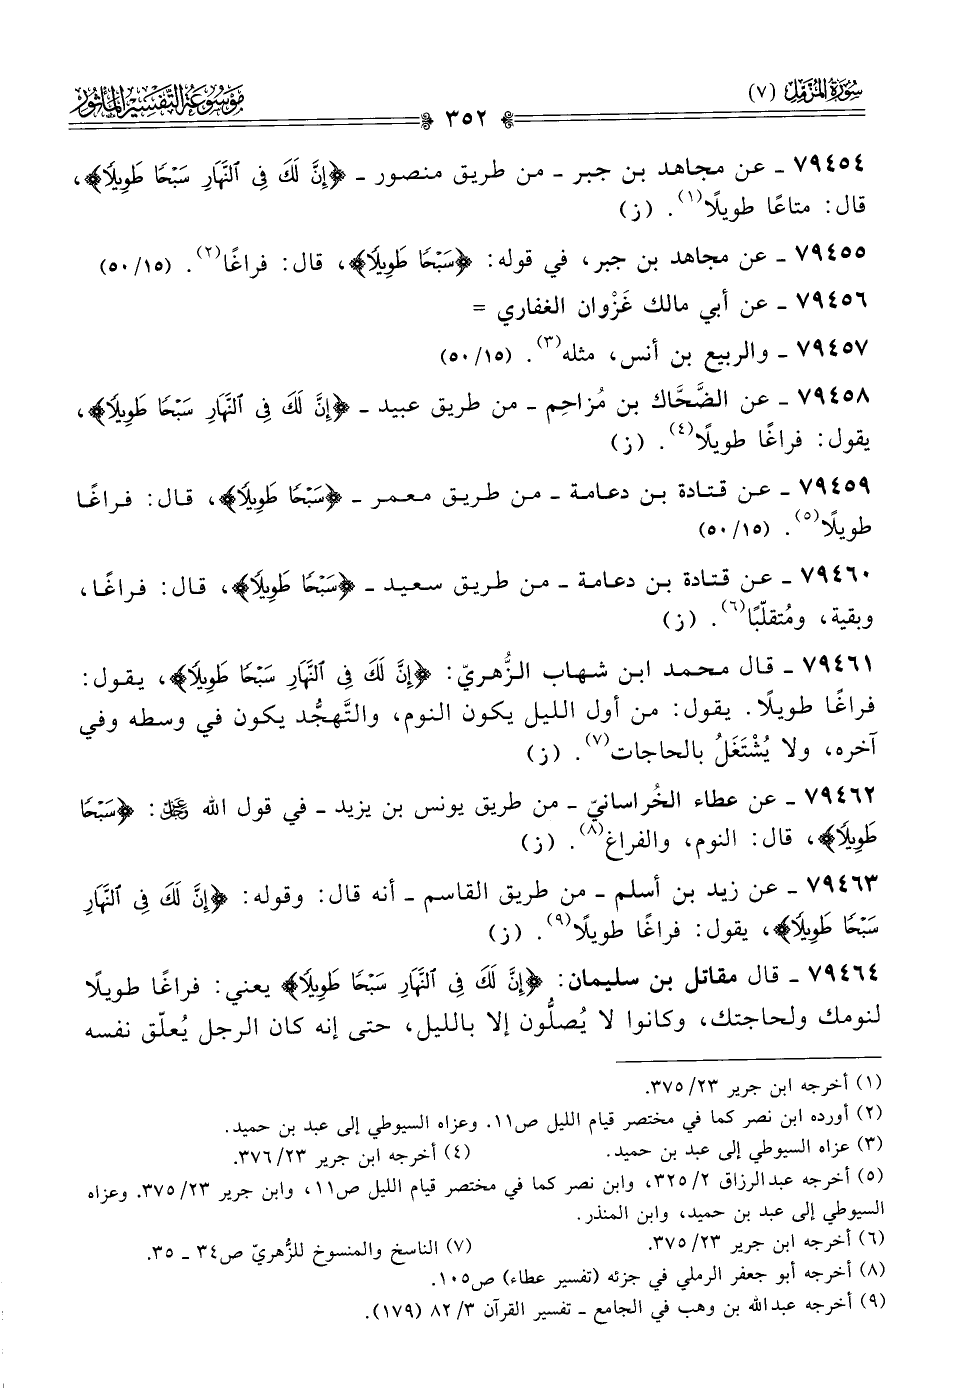 سُورَةُ المُزَّمِّل (٧)
٣٥٢
مَوْسُوعَة التَّفْسِير المَأْثُور
٧٩٤٥٤ ـ عن مجاهد بن جبر ـ من طريق منصور ـ ﴿إِنَّ لَكَ فِي ٱلنَّهَارِ سَبْحًا طَوِيلًا﴾،
قال: متاعًا طويلًا(١). (ز)
٧٩٤٥٥ ـ عن مجاهد بن جبر، في قوله: ﴿سَبْحًا طَوِيلًا﴾، قال: فراغًا(٢). (١٥/ ٥٠)
٧٩٤٥٦ ـ عن أبي مالك غَزْوان الغفاري =
٧٩٤٥٧ ـ والربيع بن أنس، مثله(٣). (١٥/ ٥٠)
٧٩٤٥٨ ـ عن الضَّحَّاك بن مُزاحِم ـ من طريق عبيد ـ ﴿إِنَّ لَكَ فِي ٱلنَّهَارِ سَبْحًا طَوِيلًا﴾،
يقول: فراغًا طويلًا(٤). (ز)
٧٩٤٥٩ ـ عن قتادة بن دعامة ـ من طريق معمر ـ ﴿سَبْحًا طَوِيلًا﴾، قال: فراغًا
طويلًا(٥). (١٥/ ٥٠)
٧٩٤٦٠ ـ عن قتادة بن دعامة ـ من طريق سعيد ـ ﴿سَبْحًا طَوِيلًا﴾، قال: فراغًا،
وبقية، ومُتقلّبًا(٦). (ز)
٧٩٤٦١ ـ قال محمد ابن شهاب الزُّهريّ: ﴿إِنَّ لَكَ فِي ٱلنَّهَارِ سَبْحًا طَوِيلًا﴾، يقول:
فراغًا طويلًا. يقول: من أول الليل يكون النوم، والتَّهجُّد يكون في وسطه وفي
آخره، ولا يُشْتَغَلُ بالحاجات(٧). (ز)
٧٩٤٦٢ ـ عن عطاء الخُراسانيّ ـ من طريق يونس بن يزيد ـ في قول الله ﷿: ﴿سَبْحًا
طَوِيلًا﴾، قال: النوم، والفراغ(٨). (ز)
٧٩٤٦٣ ـ عن زيد بن أسلم ـ من طريق القاسم ـ أنه قال: وقوله: ﴿إِنَّ لَكَ فِي ٱلنَّهَارِ
سَبْحًا طَوِيلًا﴾، يقول: فراغًا طويلًا(٩). (ز)
٧٩٤٦٤ ـ قال مقاتل بن سليمان: ﴿إِنَّ لَكَ فِي ٱلنَّهَارِ سَبْحًا طَوِيلًا﴾ يعني: فراغًا طويلًا
لنومك ولحاجتك، وكانوا لا يُصلُّون إلا بالليل، حتى إنه كان الرجل يُعلّق نفسه
(١) أخرجه ابن جرير ٢٣/ ٣٧٥.
(٢) أورده ابن نصر كما في مختصر قيام الليل ص١١. وعزاه السيوطي إلى عبد بن حميد.
(٣) عزاه السيوطي إلى عبد بن حميد. (٤) أخرجه ابن جرير ٢٣/ ٣٧٦.
(٥) أخرجه عبدالرزاق ٢/ ٣٢٥، وابن نصر كما في مختصر قيام الليل ص١١، وابن جرير ٢٣/ ٣٧٥. وعزاه
السيوطي إلى عبد بن حميد، وابن المنذر.
(٦) أخرجه ابن جرير ٢٣/ ٣٧٥. (٧) الناسخ والمنسوخ للزُّهريّ ص٣٤ ـ ٣٥.
(٨) أخرجه أبو جعفر الرملي في جزئه (تفسير عطاء) ص١٠٥.
(٩) أخرجه عبدالله بن وهب في الجامع ـ تفسير القرآن ٣/ ٨٢ (١٧٩).